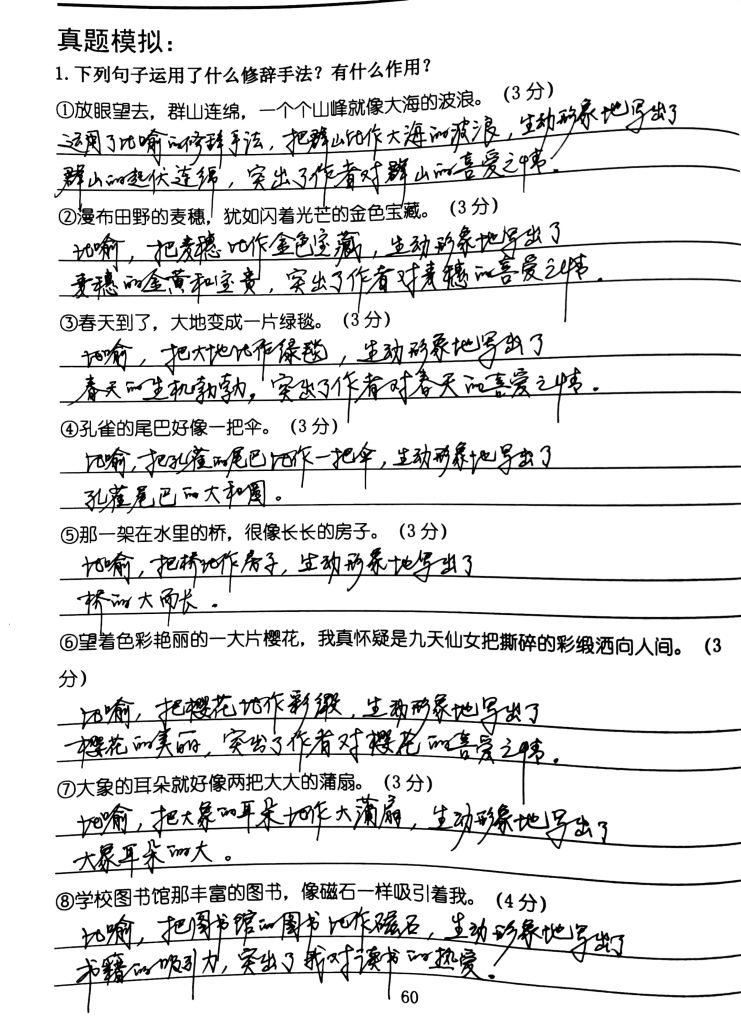 真题模拟：
1.下列句子运用了什么修辞手法？有什么作用？
①放眼望去，群山连绵，一个个山峰就像大海的波浪。（3分）
运用了比喻的修辞手法，把群山比作大海的波浪，生动形象地写出了
群山的起伏连绵，突出了作者对群山的喜爱之情。
②漫布田野的麦穗，犹如闪着光芒的金色宝藏。（3分）
比喻，把麦穗比作金色宝藏，生动形象地写出了
麦穗的金黄和宝贵，突出了作者对麦穗的喜爱之情。
③春天到了，大地变成一片绿毯。（3分）
比喻，把大地比作绿毯，生动形象地写出了
春天的生机勃勃，突出了作者对春天的喜爱之情。
④孔雀的尾巴好像一把伞。（3分）
比喻，把孔雀的尾巴比作一把伞，生动形象地写出了
孔雀尾巴的大和圆。
⑤那一架在水里的桥，很像长长的房子。（3分）
比喻，把桥比作房子，生动形象地写出了
桥的大而长。
⑥望着色彩艳丽的一大片樱花，我真怀疑是九天仙女把撕碎的彩缎洒向人间。（3
分）
比喻，把樱花比作彩缎，生动形象地写出了
樱花的美丽，突出了作者对樱花的喜爱之情。
⑦大象的耳朵就好像两把大大的蒲扇。（3分）
比喻，把大象的耳朵比作大蒲扇，生动形象地写出了
大象耳朵的大。
⑧学校图书馆那丰富的图书，像磁石一样吸引着我。（4分）
比喻，把图书馆的图书比作磁石，生动形象地写出了
书籍的吸引力，突出了我对读书的热爱。
60